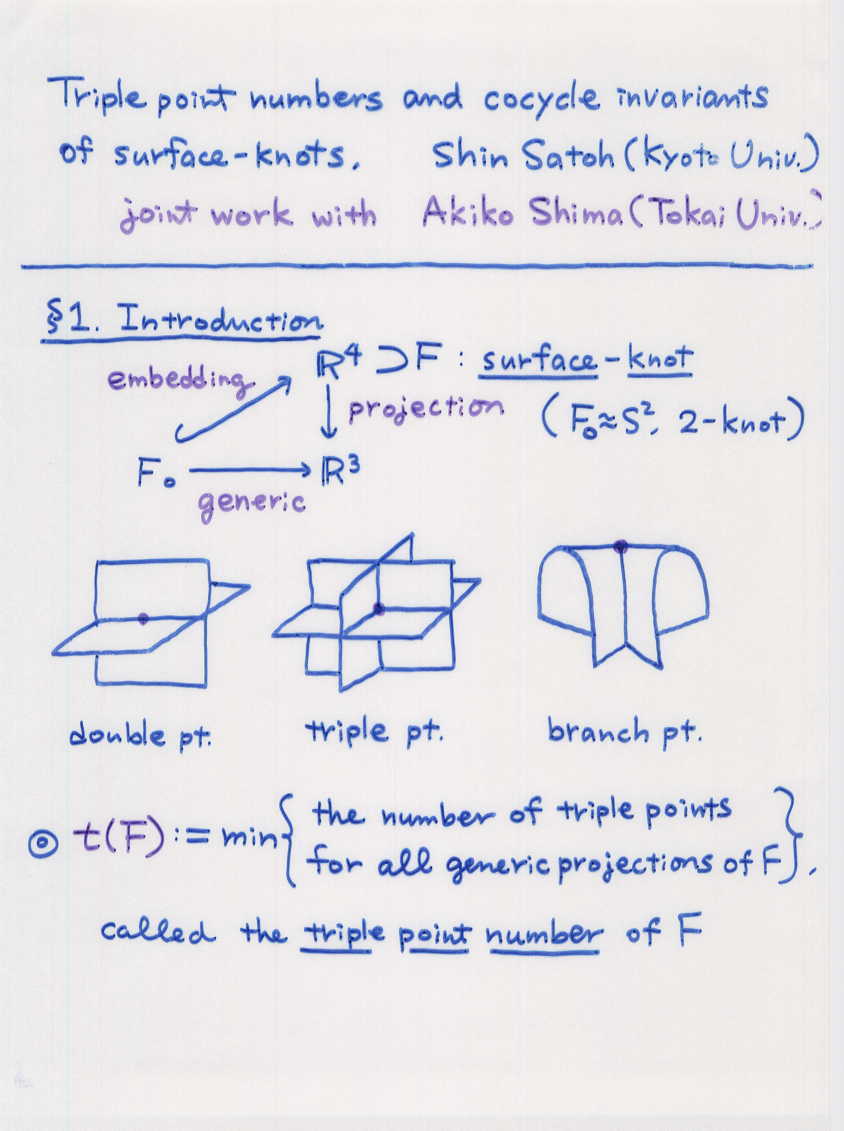 Triple point numbers and cocycle invariants
of surface-knots. Shin Satoh (Kyoto Univ.)
joint work with Akiko Shima (Tokai Univ.)
§1. Introduction
embedding
ℝ⁴ ⊃ F : surface-knot
projection
(F₀≈S², 2-knot)
F₀
ℝ³
generic
double pt. triple pt. branch pt.
◎ t(F) := min { the number of triple points
for all generic projections of F },
called the triple point number of F